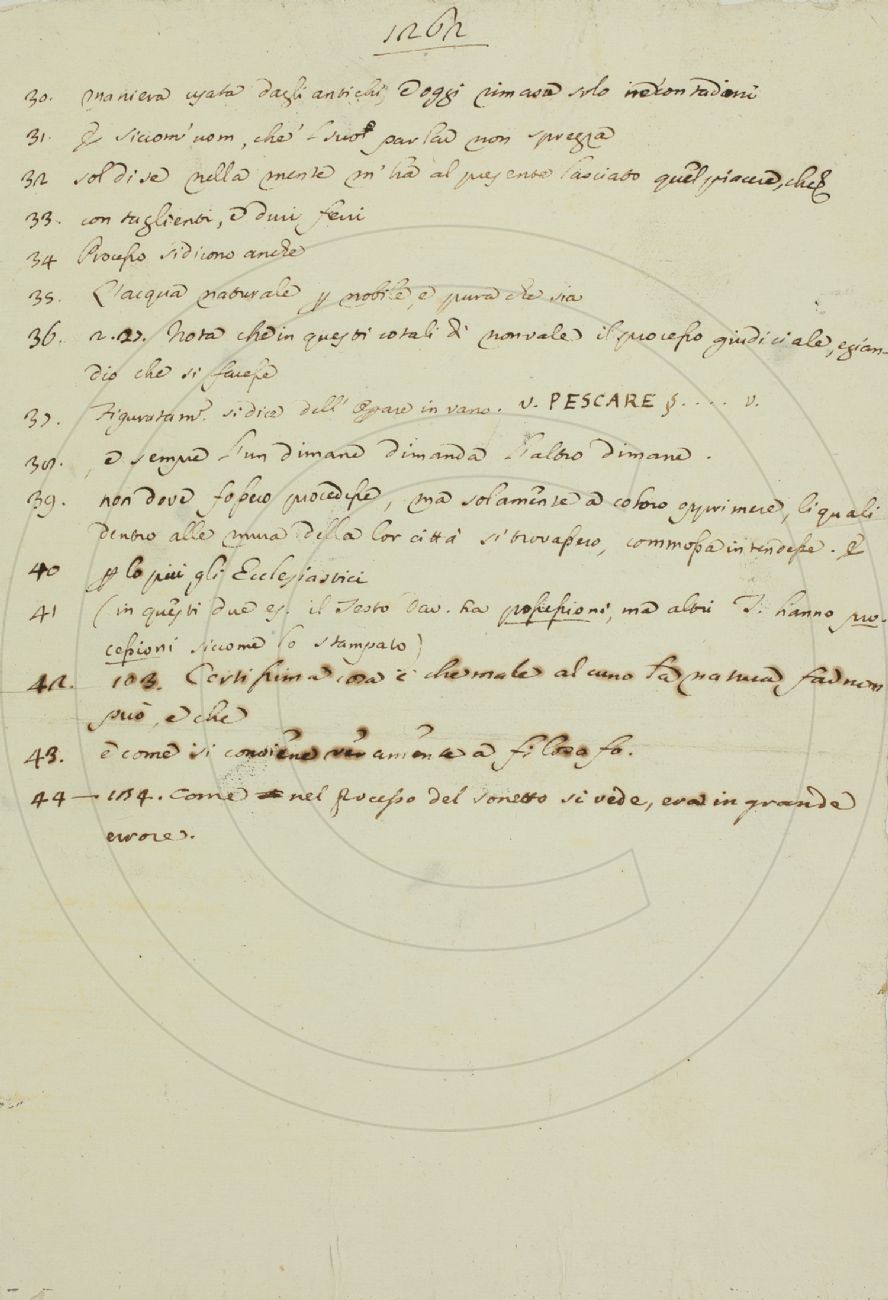 1262
30. maniera usata dagli antichi, e oggi rimasa solo ne' contadini
31. E siccom' uom, che 'l suo parlar non sprezza
32 sol di se nella mente m'ha al presente lasciato quel piacere, che
33. con taglienti, e duri ferri
34 Processo si dicono anche
35. L'acqua naturale p nobile, e pura che sia
36. 2. 27. Nota che in questi cotali dì non vale il processo giudiciale, ezian-
dio che si facesse
37. Figuratam.te si dice dell' oprare in vano. v. PESCARE §. . . . v.
38. , e sempre l'un dimane dimanda l'altro dimane.
39. non dove fossero procedesse, ma solamente a coloro opprimere, li quali
dentro alle mura della lor città si trovassero, commossa intendesse. E
40 p lo più gli Ecclesiastici
41 (in questi due es. il Testo Dav. ha possessioni, ma altri T. hanno pro-
cessioni siccome lo stampato)
42. 103. Certissima cosa è che male alcuno la natura far non
può, e che
43. e come si conviene veramente a filosofo.
44 — 184. come nel processo del sonetto si vede, era in grande
errore.